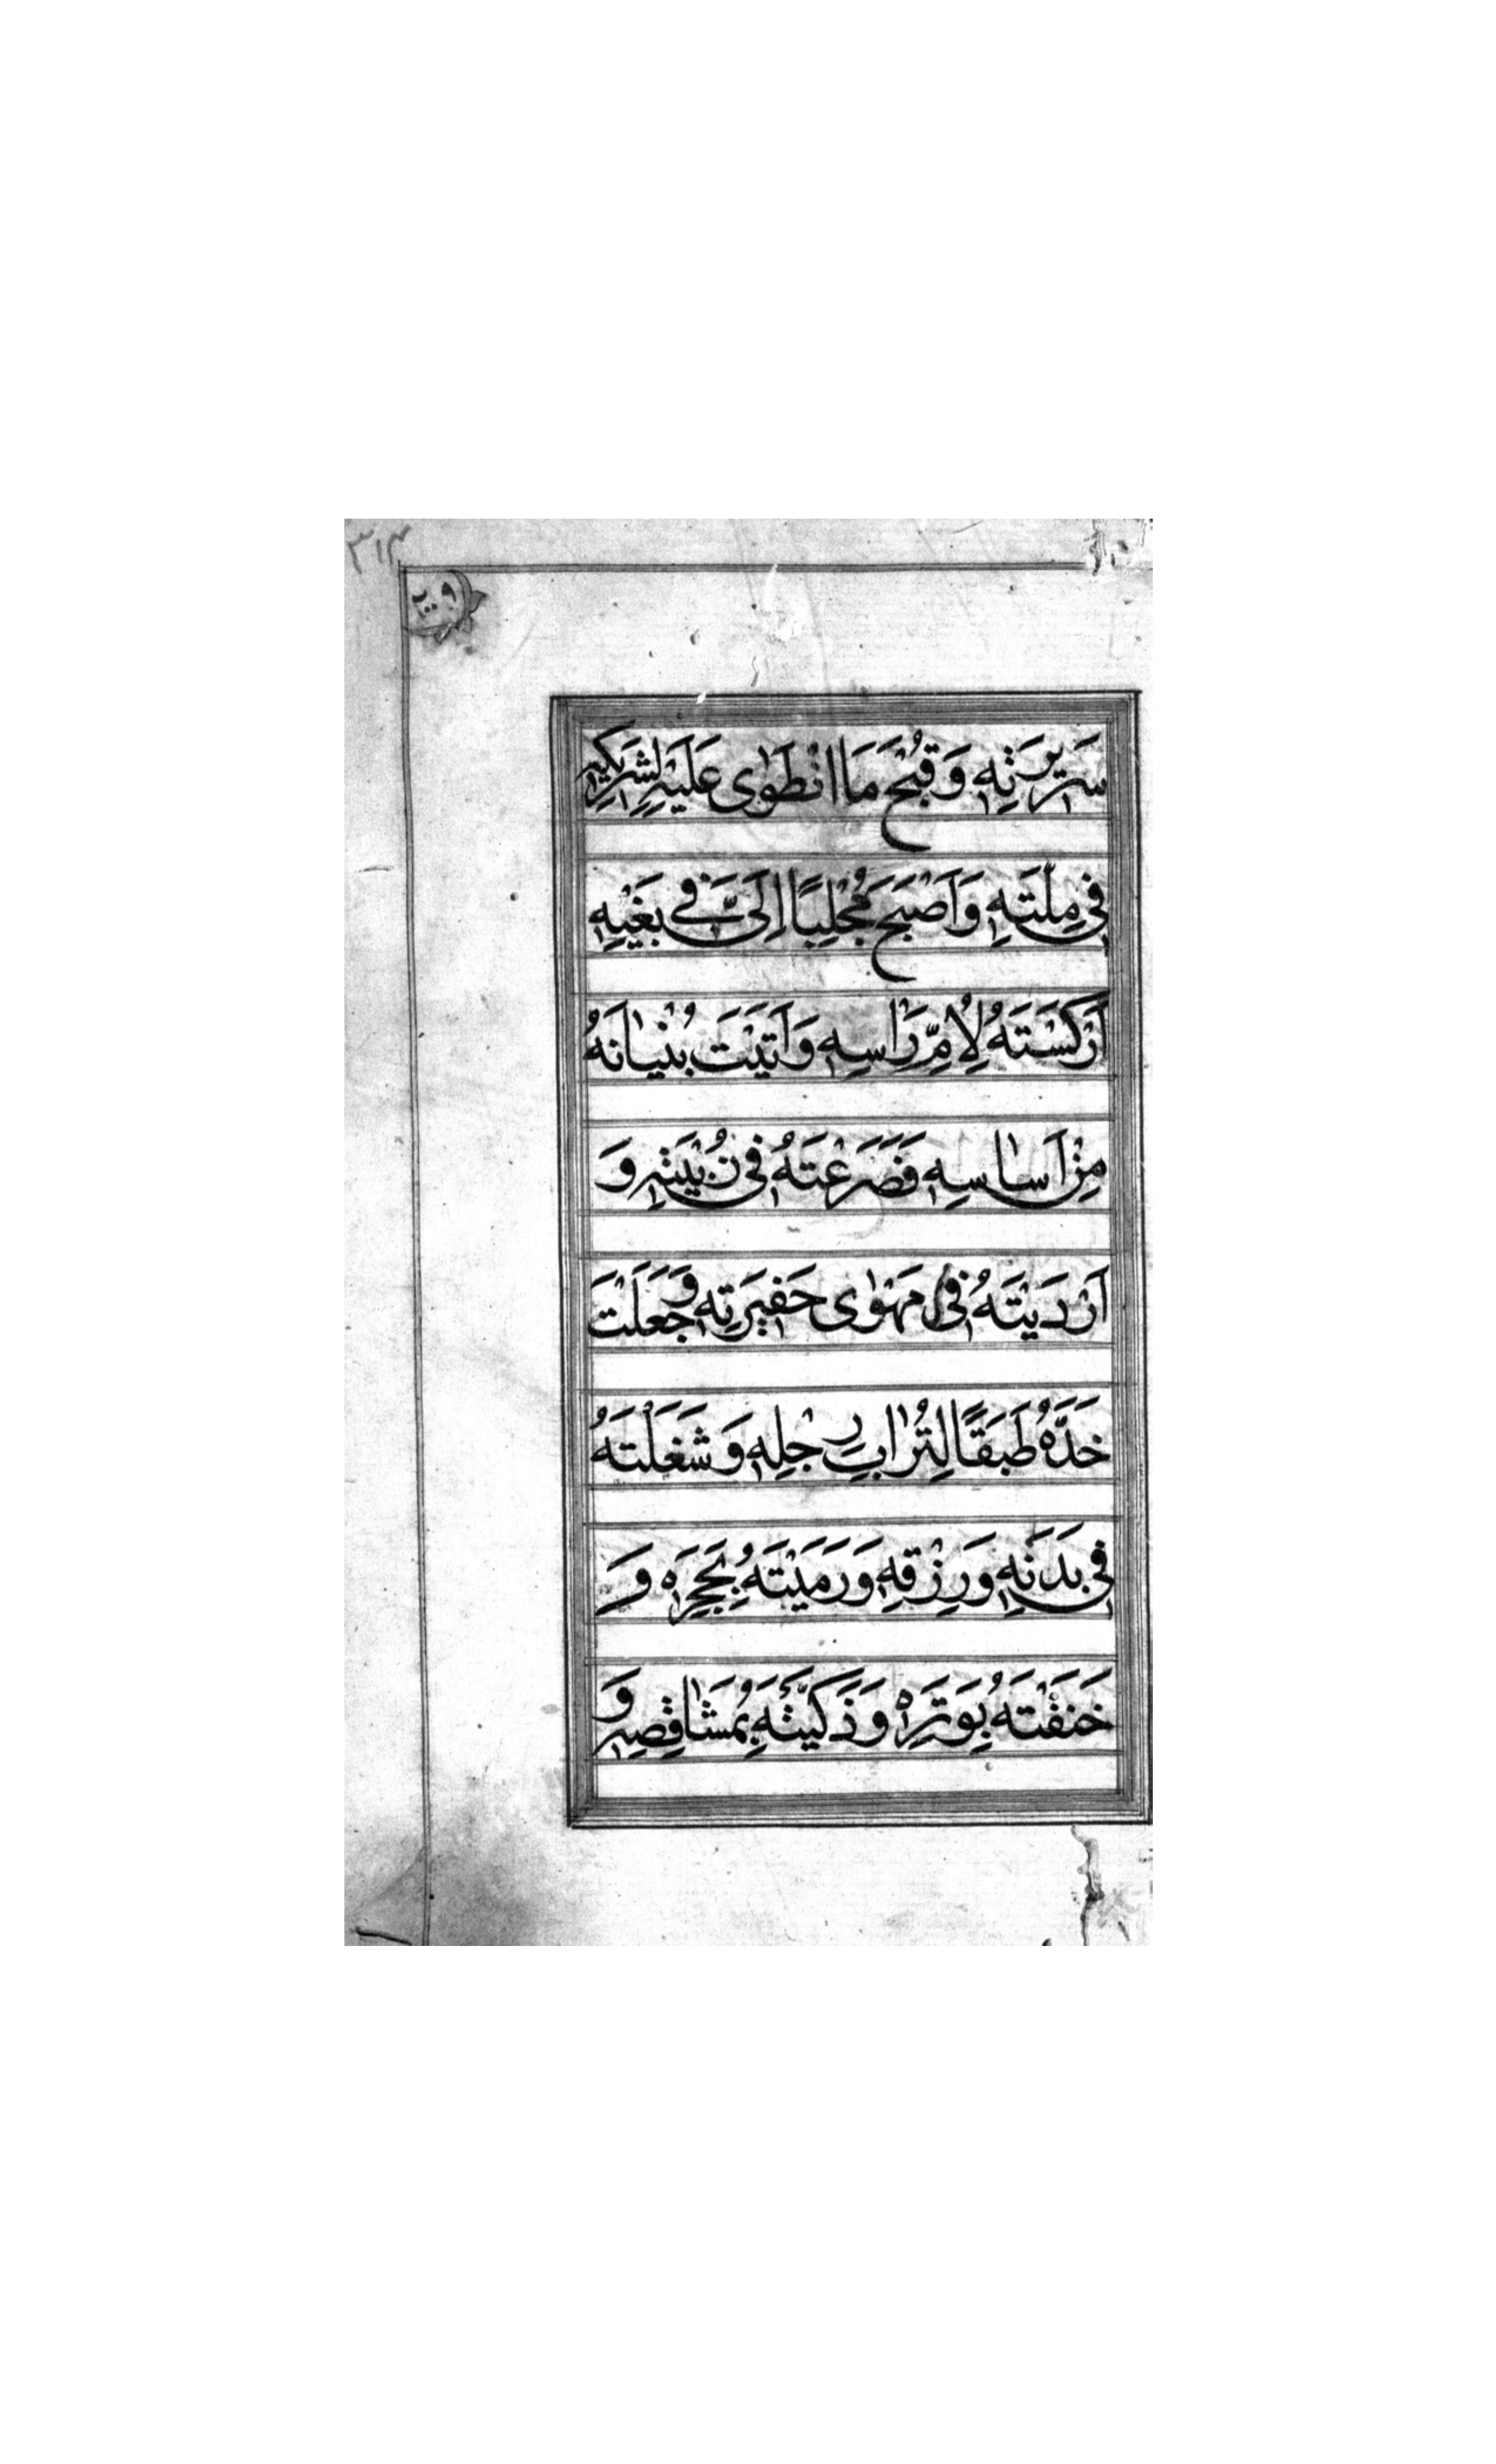 ٣١٣
سَرِيرَتِهِ وَقُبْحَ مَا انْطَوٰى عَلَيْهِ لِشَرِيكِهِ
فِي مِلَّتِهِ وَاَصْبَحَ مُجْلِبًا اِلَيَّ فِي بَغْيِهِ
اَرْكَسْتَهُ لِاُمِّ رَاْسِهِ وَاَتَيْتَ بُنْيٰانَهُ
مِنْ اَسٰاسِهِ فَصَرَعْتَهُ فِي زُبْيَتِهِ وَ
اَرْدَيْتَهُ فِي مَهْوٰى حَفِيرَتِهِ وَجَعَلْتَ
خَدَّهُ طَبَقًا لِتُرٰابِ رِجْلِهِ وَشَغَلْتَهُ
فِي بَدَنِهِ وَرِزْقِهِ وَرَمَيْتَهُ بِحَجَرِهِ وَ
خَنَقْتَهُ بِوَتَرِهِ وَذَكَّيْتَهُ بِمَشٰاقِصِهِ وَ